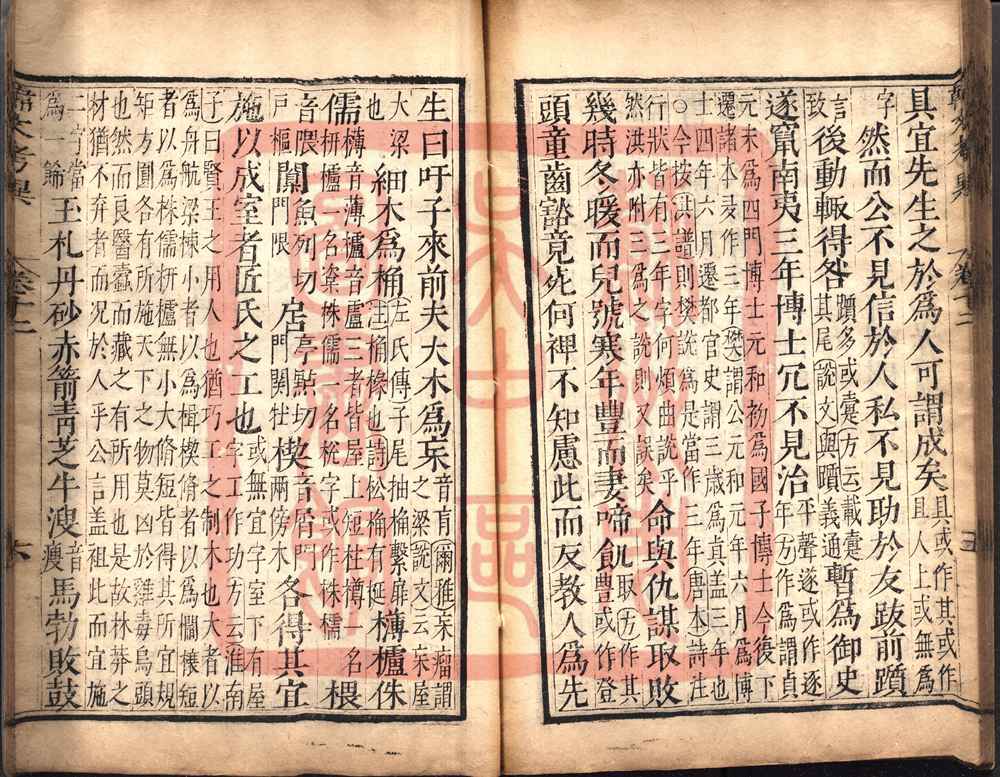 具宜先生之於為人可謂成矣具或作其或作且人上或無為
字然而公不見信於人私不見助於友跋前躓
言致後動輙得咎躓多或疐方云載疐其尾說文與躓義通暫為御史
遂竄南夷三年博士冗不見治平聲遂或作逐年方作為謂貞
元末為四門博士元和初為國子博士今復下
遷諸本爻作三年樊謂公元和元年六月為博
士四年六月遷都官史謂三歲為真蓋三年也
○今按洪譜則樊說為是當作三年唐本詩注
行狀皆有三年字何煩曲說乎然洪亦附三為之說則又誤矣命與仇謀取敗
幾時冬煖而兒號寒年豐而妻啼飢取方作其豐或作登
頭童齒豁竟死何裨不知慮此而反教人為先
韓文考異 卷十二 五
生曰吁子來前夫大木為杗音盲爾雅杗廇謂之梁說文云杗屋
大梁也細木為桷左氏傳子尾抽桷繫扉注桷椽也詩松桷有梴欂櫨侏
儒欂音薄櫨音盧三者皆屋上短柱欂一名枅櫨一名楶侏儒一名梲字或作株檽椳
音隈戶樞闑魚列切門限扂亭點切門關牡楔音屑門兩傍木各得其宜
施以成室者匠氏之工也或無宜字室下有屋字工作功方云淮南
子曰賢王之用人也猶巧工之制木也大者以
為舟航梁棟小者以為楫楔脩者以為櫩榱短
者以為株儒枅櫨無小大脩短皆得其所宜規
矩方圓各有所施天下之物莫凶於雞毒烏頭
也然而良醫橐而藏之有所用也是故林莽之
材猶不弃者而況於人乎公言蓋祖此而宜施
二字當為一論玉札丹砂赤箭青芝牛溲音瘦馬勃敗鼓
韓文考異 卷十二 六